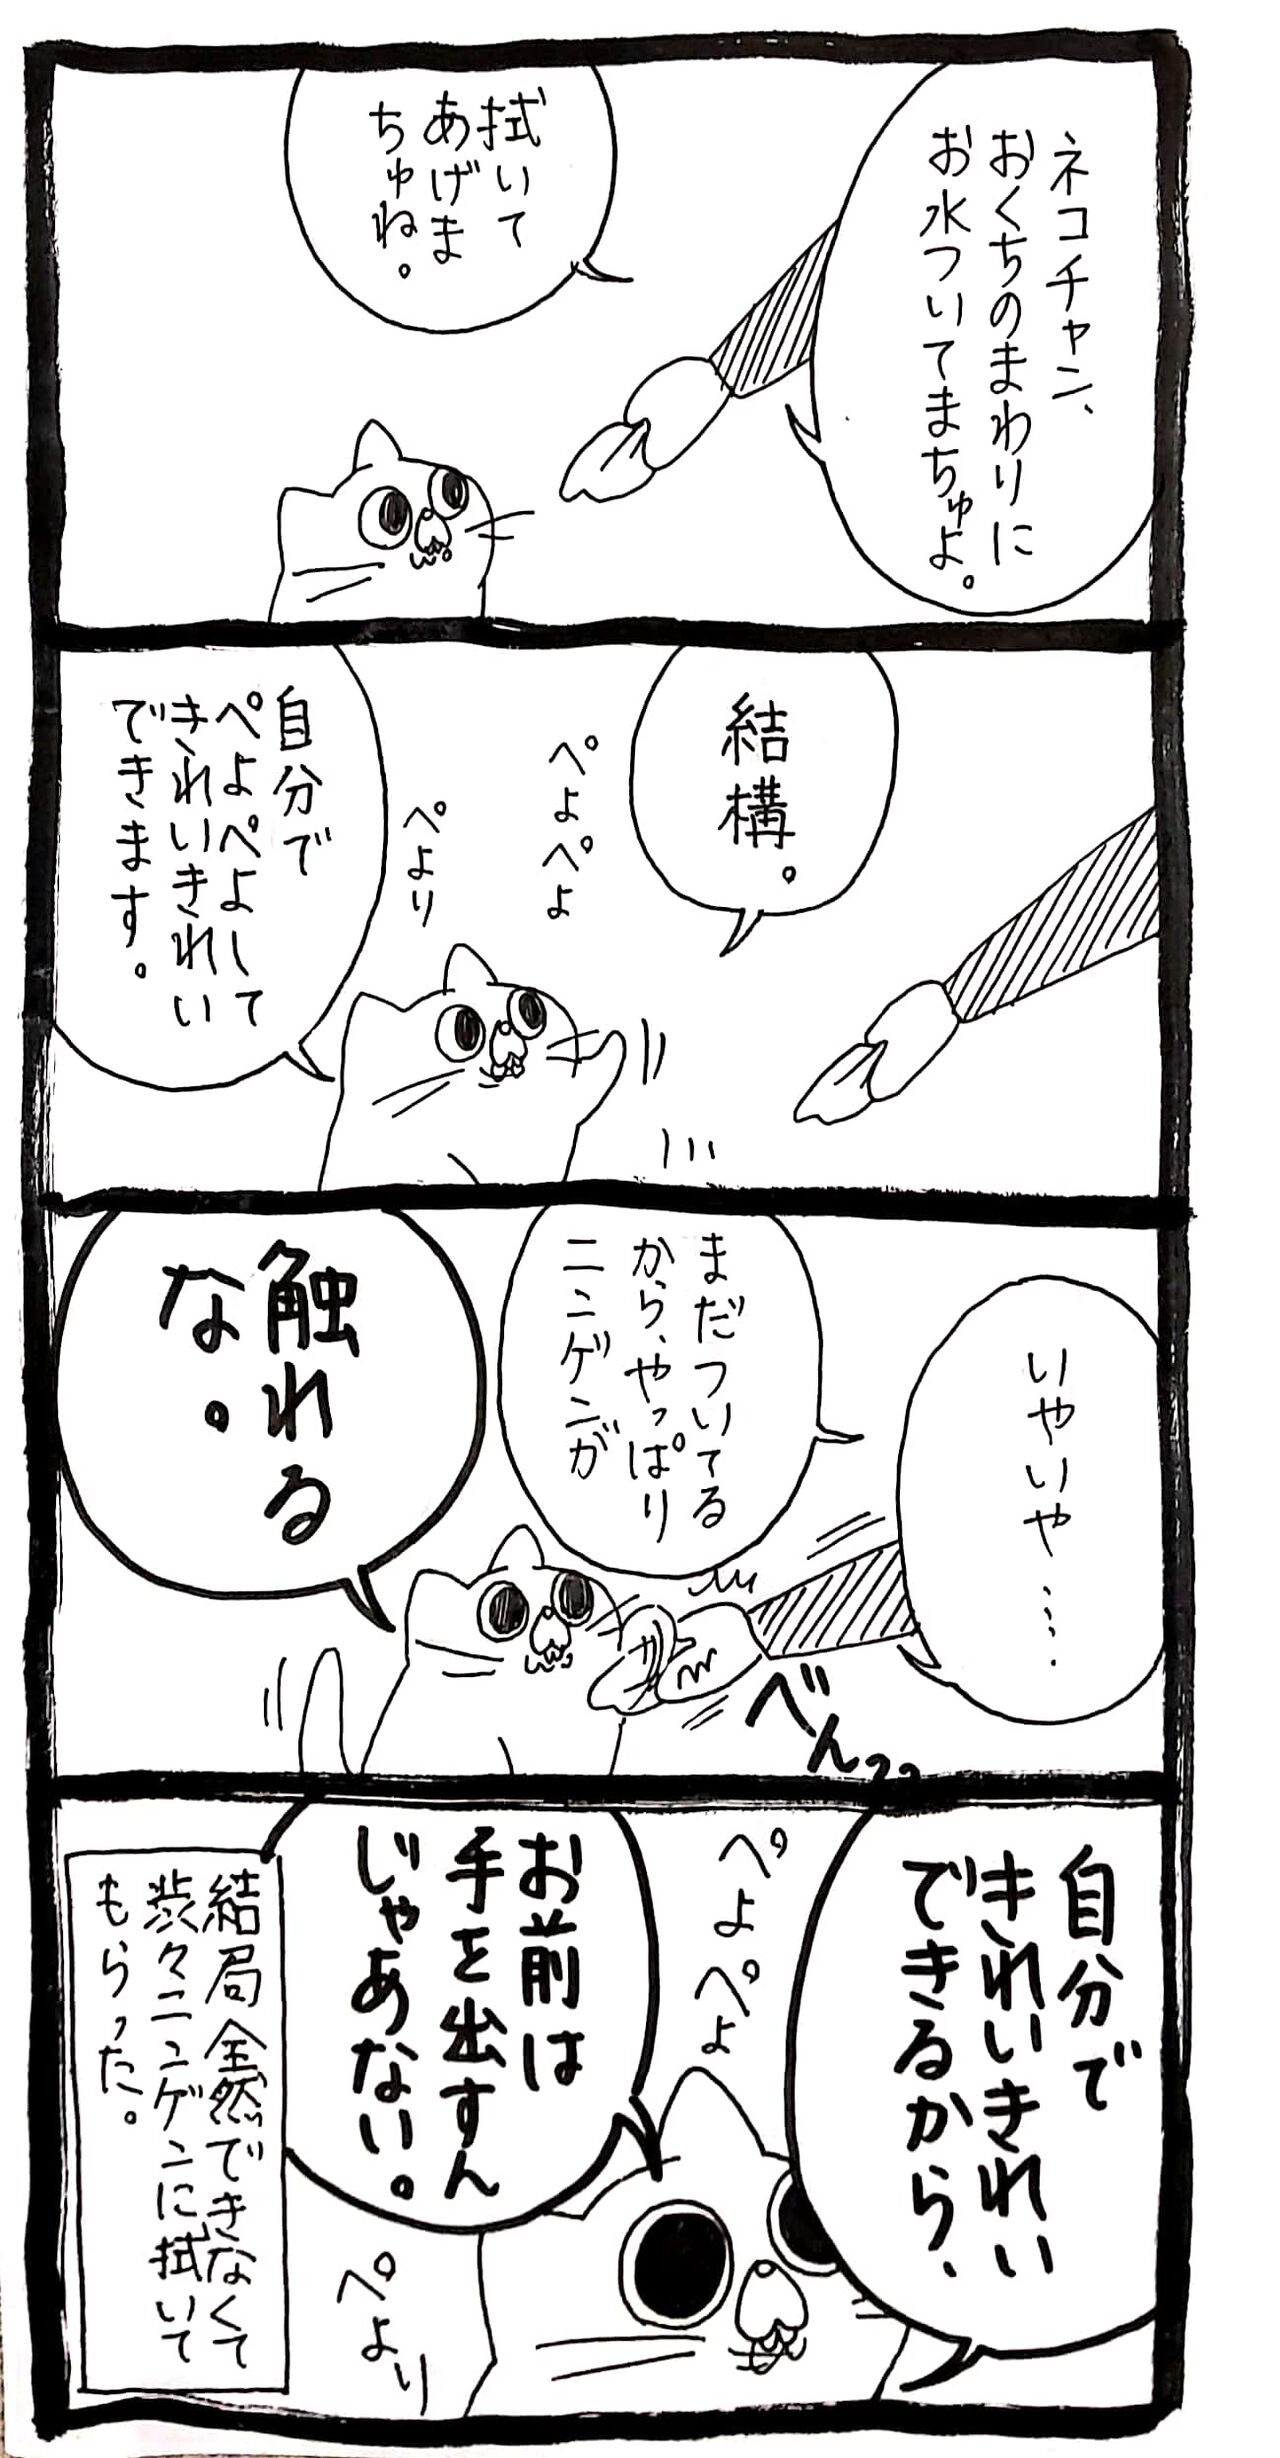 ネコチャン、
おくちのまわりに
お水ついてまちゅよ。
拭いて
あげま
ちゅね。
結構。
ぺよぺよ
ぺより
自分で
ぺよぺよして
きれいきれい
できます。
いやいや…
まだついてる
から、やっぱり
ニンゲンが
べんっ
触れる
な。
自分で
きれいきれい
できるから、
ぺよぺよ
お前は
手を出すん
じゃあない。
ぺより
結局全然できなくて
渋々ニンゲンに拭いて
もらった。